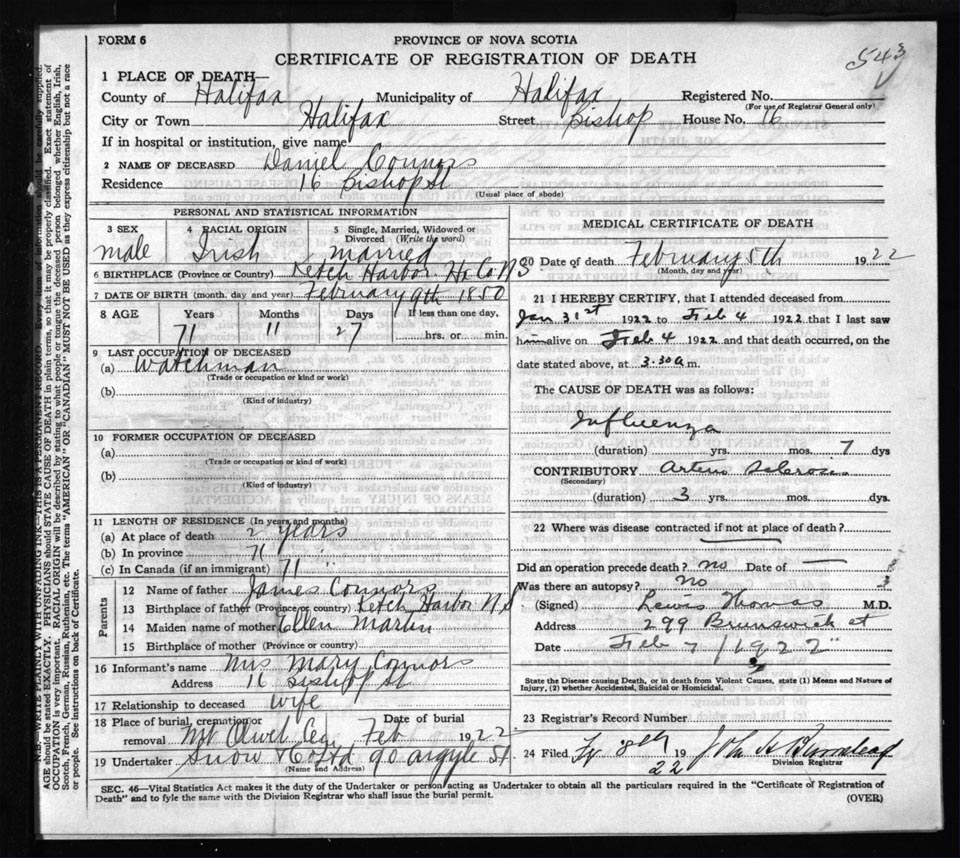 543
FORM 6
PROVINCE OF NOVA SCOTIA
CERTIFICATE OF REGISTRATION OF DEATH
1 PLACE OF DEATH—
County of Halifax Municipality of Halifax Registered No.
(For use of Registrar General only)
City or Town Halifax Street Bishop House No. 16
If in hospital or institution, give name
2 NAME OF DECEASED Daniel Connors
Residence 16 Bishop St
(Usual place of abode)
PERSONAL AND STATISTICAL INFORMATION
3 SEX male
4 RACIAL ORIGIN Irish
5 Single, Married, Widowed or Divorced (Write the word) married
6 BIRTHPLACE (Province or Country) Ketch Harbor Hx Co NS
7 DATE OF BIRTH (month, day and year) February 9th 1850
8 AGE Years Months Days If less than one day,
71 11 27 hrs. or min.
9 LAST OCCUPATION OF DECEASED
(a) Watchman
(Trade or occupation or kind or work)
(b)
(Kind of industry)
10 FORMER OCCUPATION OF DECEASED
(a)
(Trade or occupation or kind of work)
(b)
(Kind of industry)
11 LENGTH OF RESIDENCE (In years and months)
(a) At place of death 2 years
(b) In province 71 "
(c) In Canada (if an immigrant) 71 "
Parents
12 Name of father James Connors
13 Birthplace of father (Province or country) Ketch Harbor N S
14 Maiden name of mother Ellen Martin
15 Birthplace of mother (Province or country)
16 Informant's name Mrs Mary Connors
Address 16 Bishop St
17 Relationship to deceased wife
18 Place of burial, cremation or removal Mt Olivet Cem Date of burial Feb 1922
19 Undertaker Snow & Co Ltd 90 argyle St.
(Name and Address)
MEDICAL CERTIFICATE OF DEATH
20 Date of death February 5th 1922
(Month, day and year)
21 I HEREBY CERTIFY, that I attended deceased from
Jan 31st 1922 to Feb 4 1922 that I last saw
him alive on Feb 4 1922 and that death occurred, on the
date stated above, at 3.30 a m.
The CAUSE OF DEATH was as follows:
Influenza
(duration) yrs. mos. 7 dys
CONTRIBUTORY Arterio Sclerosis
(Secondary)
(duration) 3 yrs. mos. dys.
22 Where was disease contracted if not at place of death?
Did an operation precede death? no Date of —
Was there an autopsy? no
(Signed) Lewis Thomas M.D.
Address 299 Brunswick st
Date Feb 7 / 1922
State the Disease causing Death, or in death from Violent Causes, state (1) Means and Nature of
Injury, (2) whether Accidental, Suicidal or Homicidal.
23 Registrar's Record Number
24 Filed 8th 1922 John A
Division Registrar
SEC. 46—Vital Statistics Act makes it duty of the Undertaker or person acting as Undertaker to obtain all the particulars required in the "Certificate of Registration of
Death" and to fyle the same with the Division Registrar who shall issue the burial permit.
(OVER)
N.B.—WRITE PLAINLY WITH UNFADING INK—THIS IS A PERMANENT RECORD. Every item of information should be carefully supplied.
AGE should be stated EXACTLY. PHYSICIANS should STATE CAUSE OF DEATH in plain terms, so that it may be properly classified. Exact statement of
OCCUPATION is very important. RACIAL ORIGIN will be described by stating to what people or tongue the deceased person belonged whether English, Irish,
Scotch, French, German, Russian, Ruthenian, etc. The terms "AMERICAN" OR "CANADIAN" MUST NOT BE USED as they express citizenship but not a race
or people. See instructions on back of Certificate.